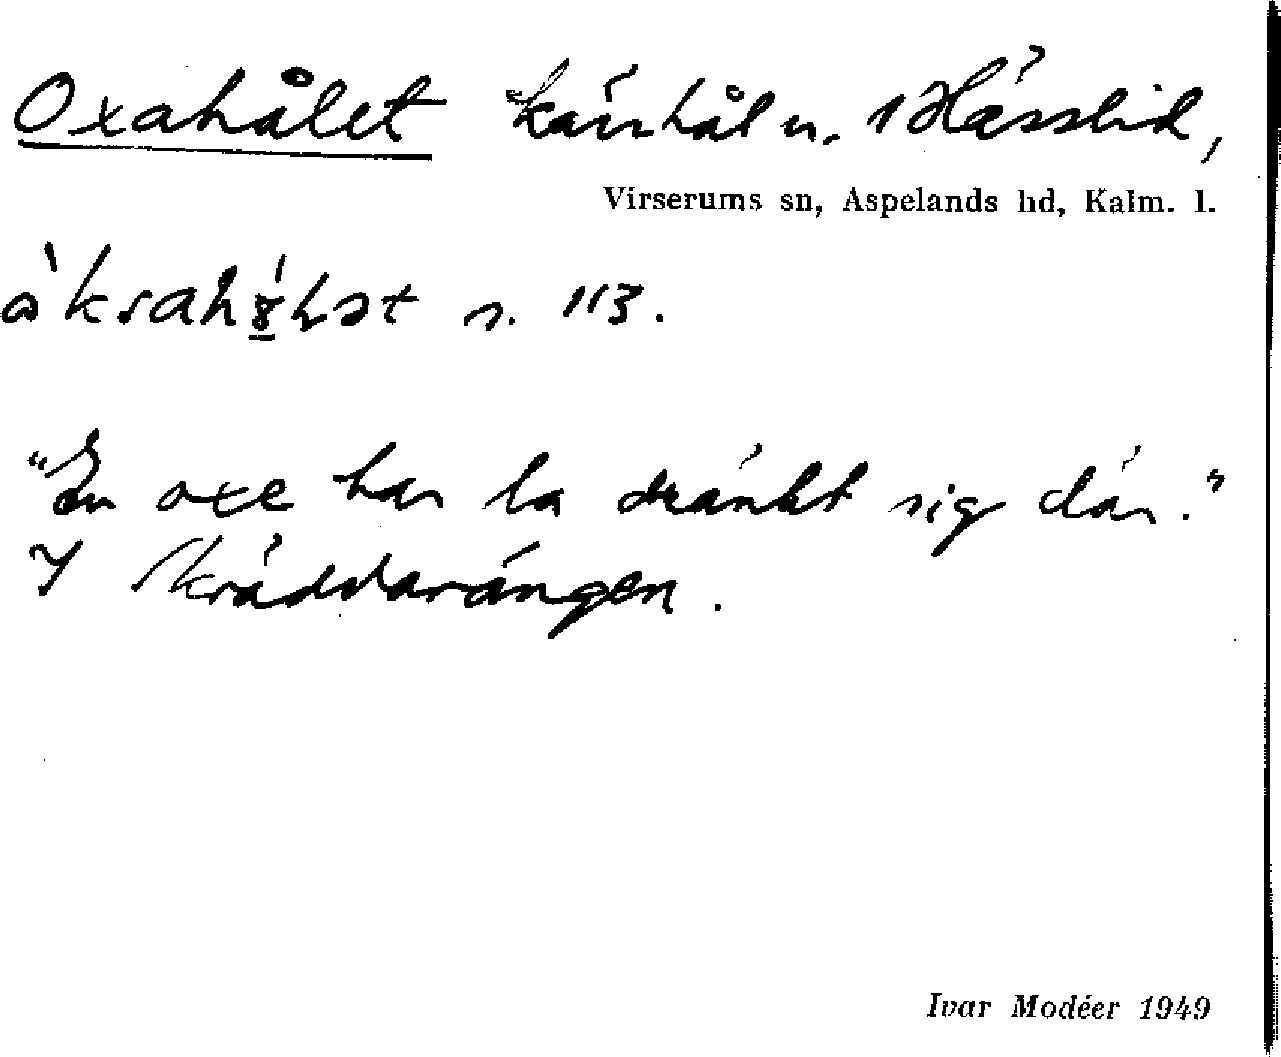 Oxahålet kärrhål u. 1 Hässlid,
Virserums sn, Aspelands hd, Kalm. l.
s. 113.
"En oxe har la dränkt sig där."
I Skräddarängen.
Ivar Modéer 1949